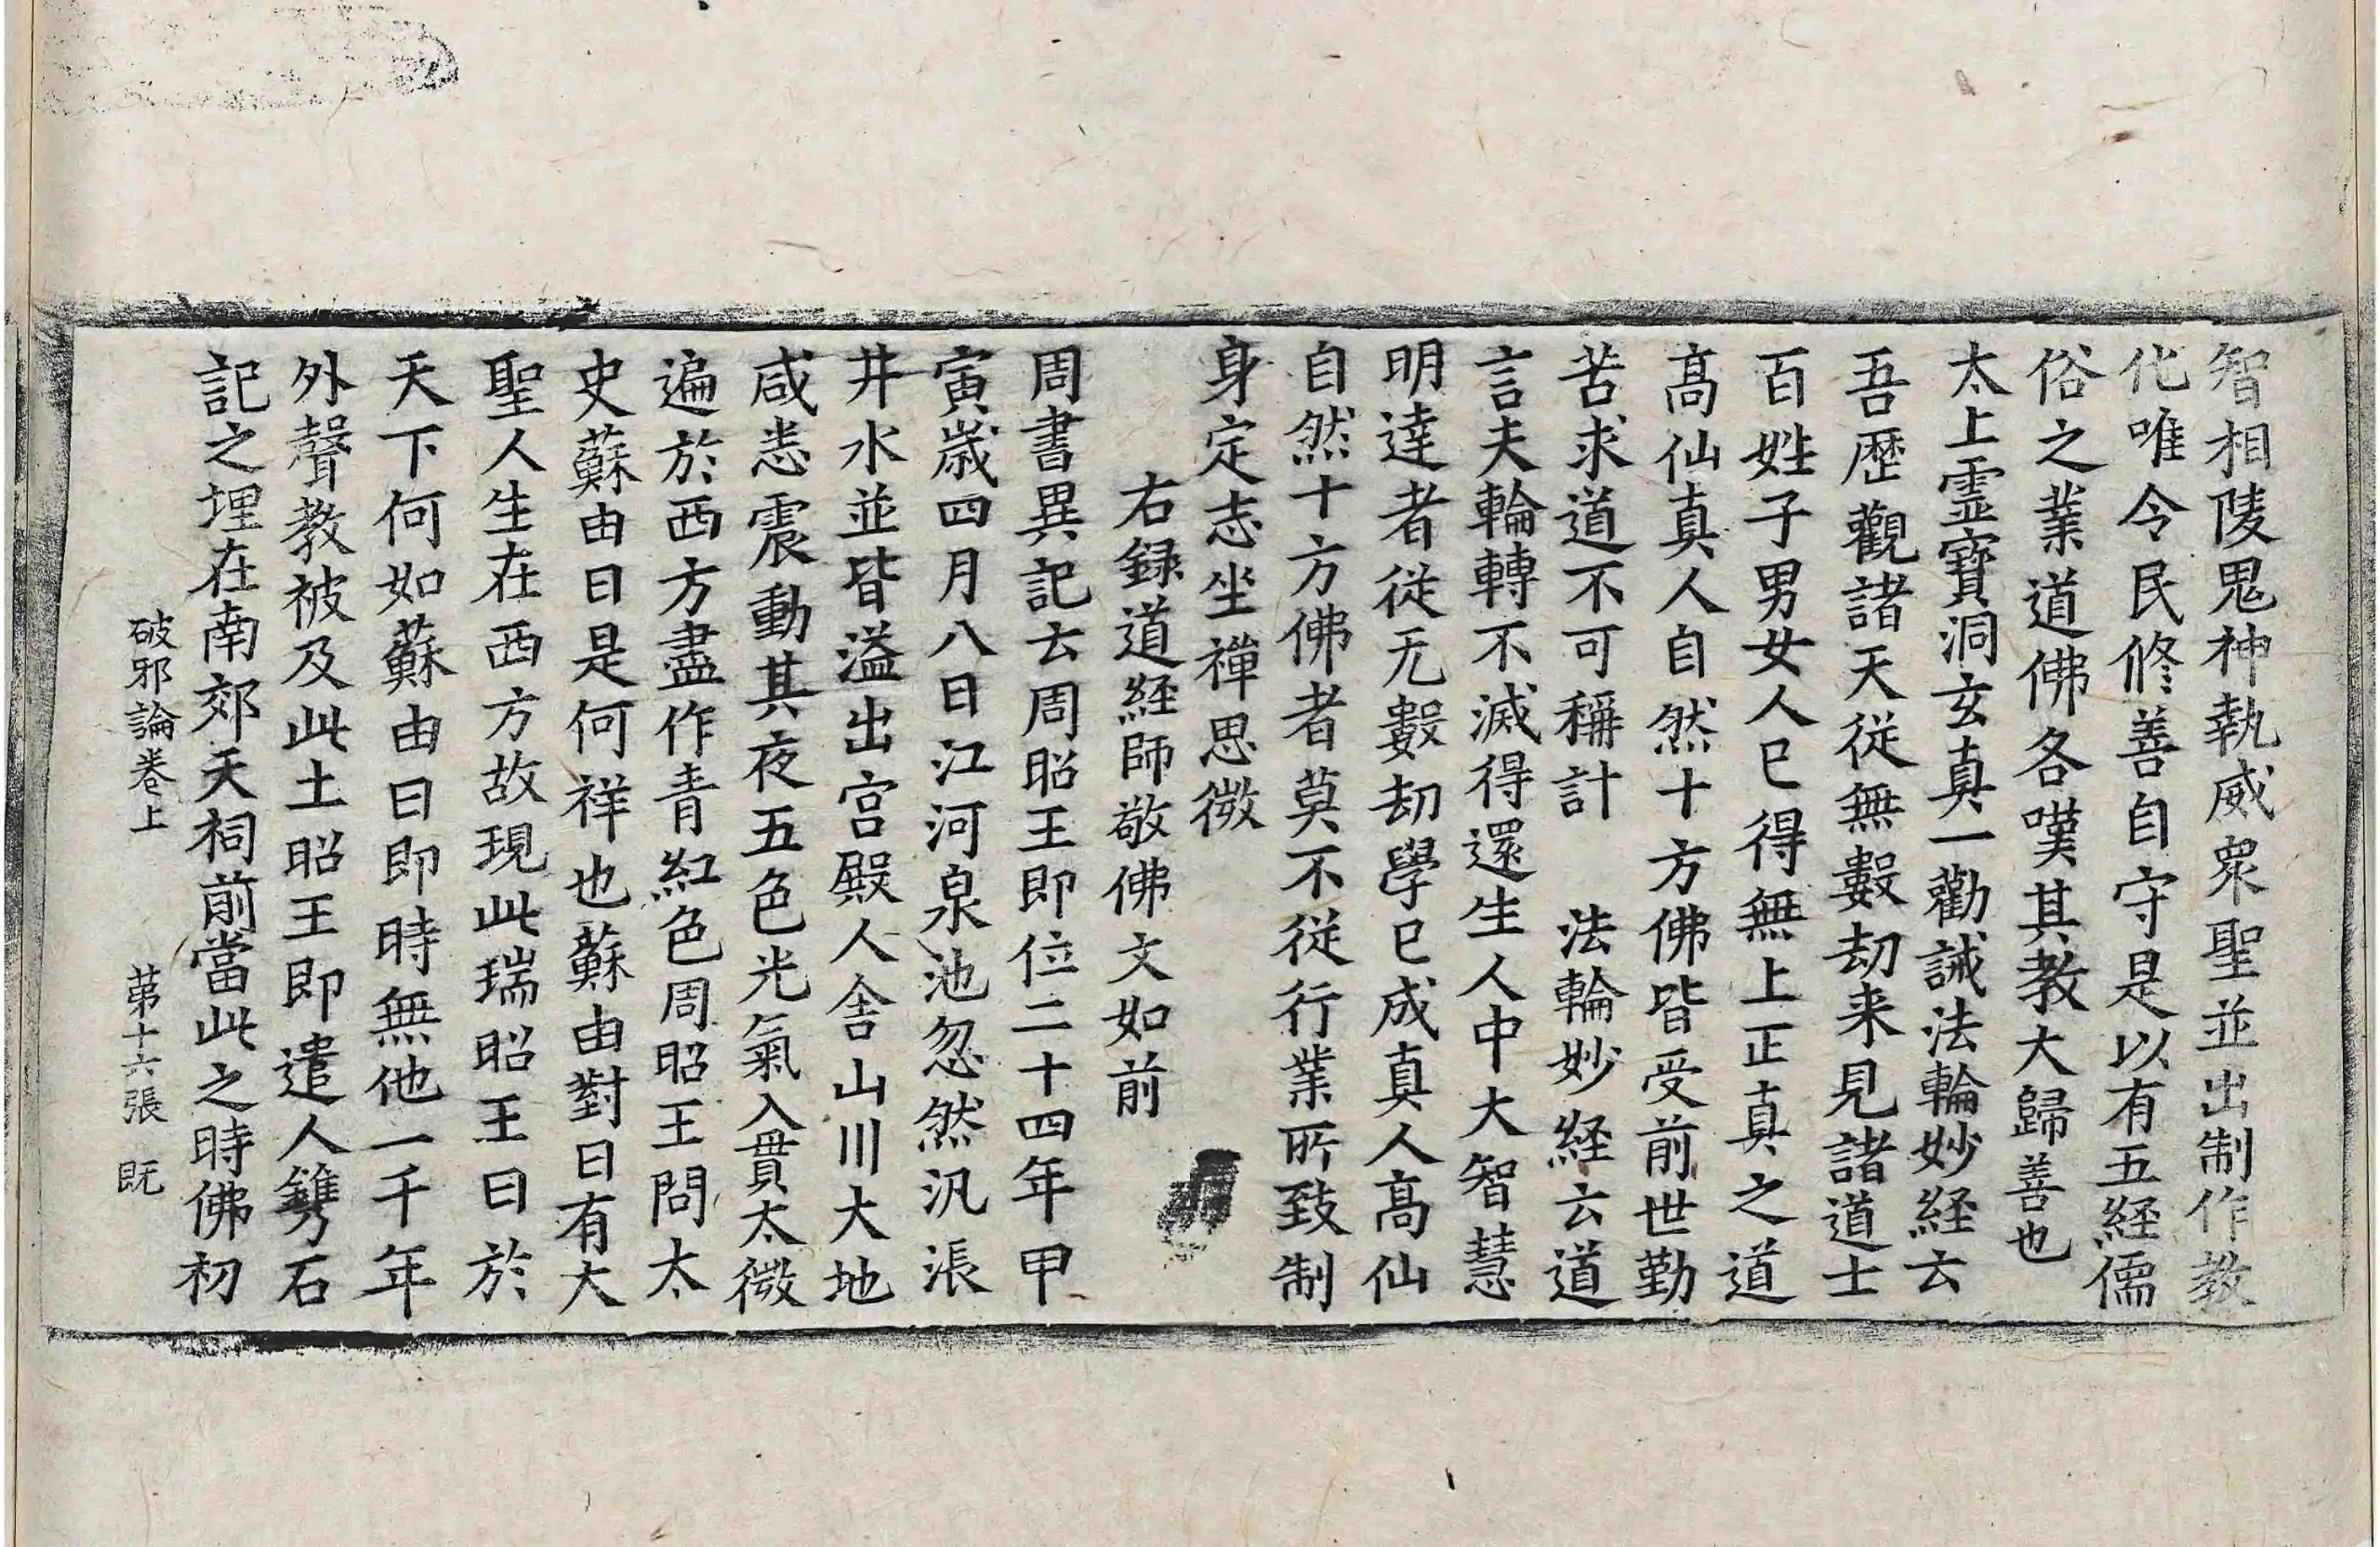 智相陵鬼神執威衆聖並出制作教
化唯令民修善自守是以有五経儒
俗之業道佛各嘆其教大歸善也
太上霊寶洞玄真一勸誡法輪妙経云
吾歷觀諸天從無數劫来見諸道士
百姓子男女人已得無上正真之道
髙仙真人自然十方佛皆受前世勤
苦求道不可稱計　法輪妙経云道
言夫輪轉不滅得還生人中大智慧
明達者從无數劫學已成真人髙仙
自然十方佛者莫不從行業所致制
身定志坐禪思微
右録道経師敬佛文如前
周書異記云周昭王即位二十四年甲
寅歲四月八日江河泉池忽然汎漲
井水並皆溢出宫殿人舎山川大地
咸悉震動其夜五色光氣入貫太微
遍於西方盡作青紅色周昭王問太
史蘇由曰是何祥也蘇由對曰有大
聖人生在西方故現此瑞昭王曰於
天下何如蘇由曰即時無他一千年
外聲教被及此土昭王即遣人鐫石
記之埋在南郊天祠前當此之時佛初
破邪論卷上　第十六張　既